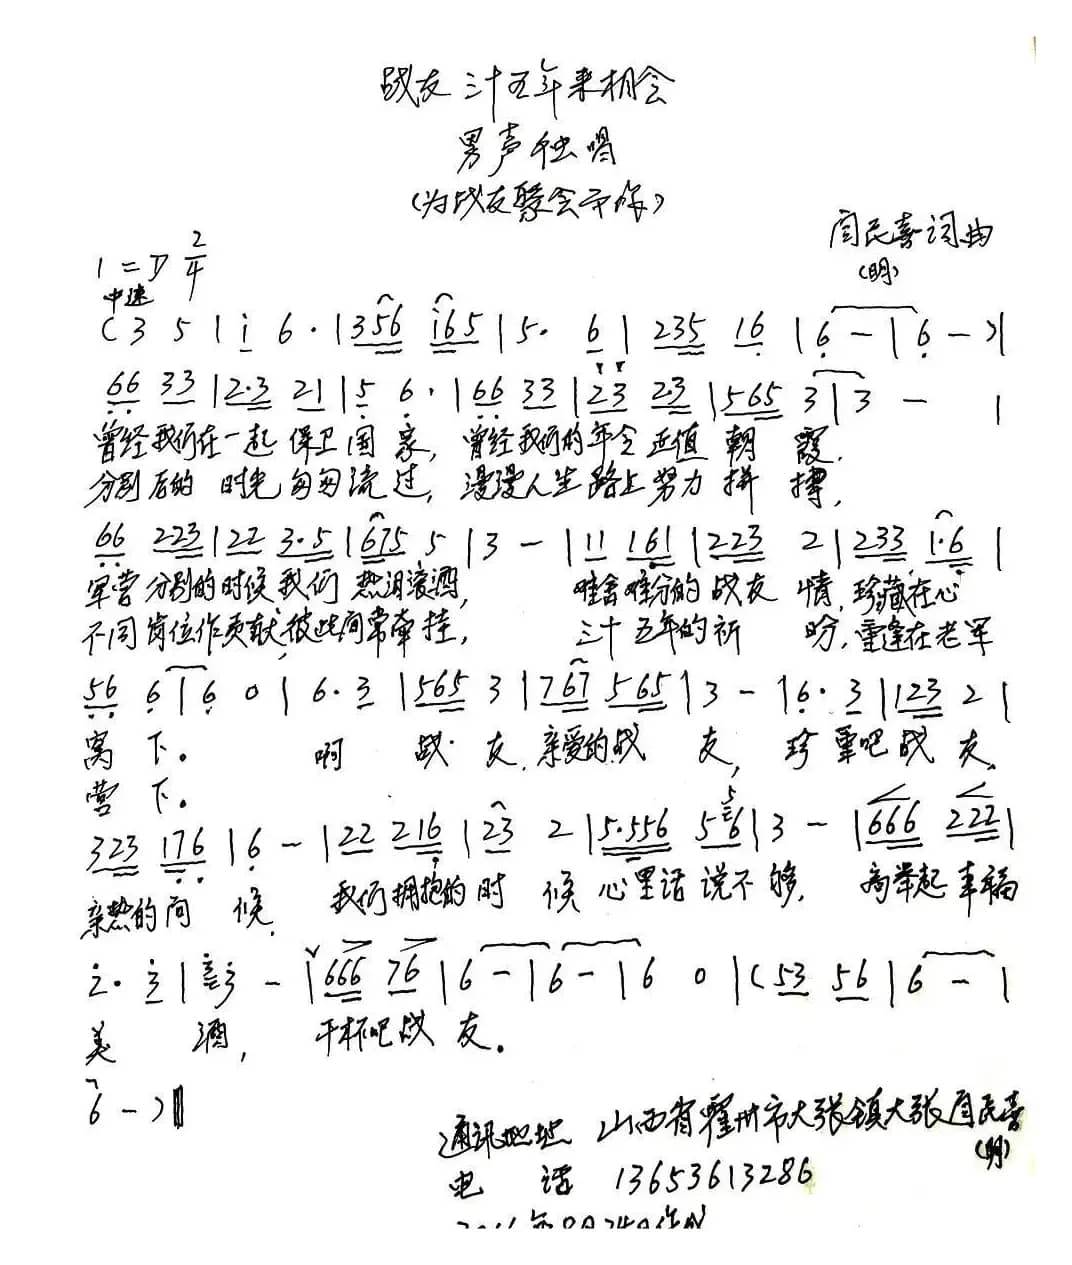 战友三十五年来相会
男声独唱
(为战友聚会而作)
闫民喜词曲
(明)
1=D 2/4
中速
(3 5|i 6·|356 i65|5· 6|235 16|6-|6-)|
66 33|2·3 21|5 6·|66 33|23 23|565 3|3 - |
曾经我们在一起保卫国家,曾经我们的年令正值朝霞.
分别后的时光匆匆流过,漫漫人生路上努力拼搏,
66 223|22 3·5|675 5|3 -|11 161|223 2|233 1·6|
军营分别的时候我们热泪滚洒, 难舍难分的战友情,珍藏在心
不同岗位作贡献,彼此间常牵挂, 三十五年的祈盼,重逢在老军
56 6|6 0|6·3|565 3|767 565|3 -|6·3|123 2|
窝下。 啊 战友,亲爱的战友,珍重吧战友,
营下。
323 176|6 -|22 216|23 2|5·556 56|3 -|666 222|
亲热的问候, 我们拥抱的时候心里话说不够, 高举起幸福
2·3|3 -|666 76|6-|6-|6 0|(53 56|6 -|
美 酒, 干杯吧战友。
6 -)‖
通讯地址 山西省霍州市大张镇大张闫民喜
(明)
电话 13653613286